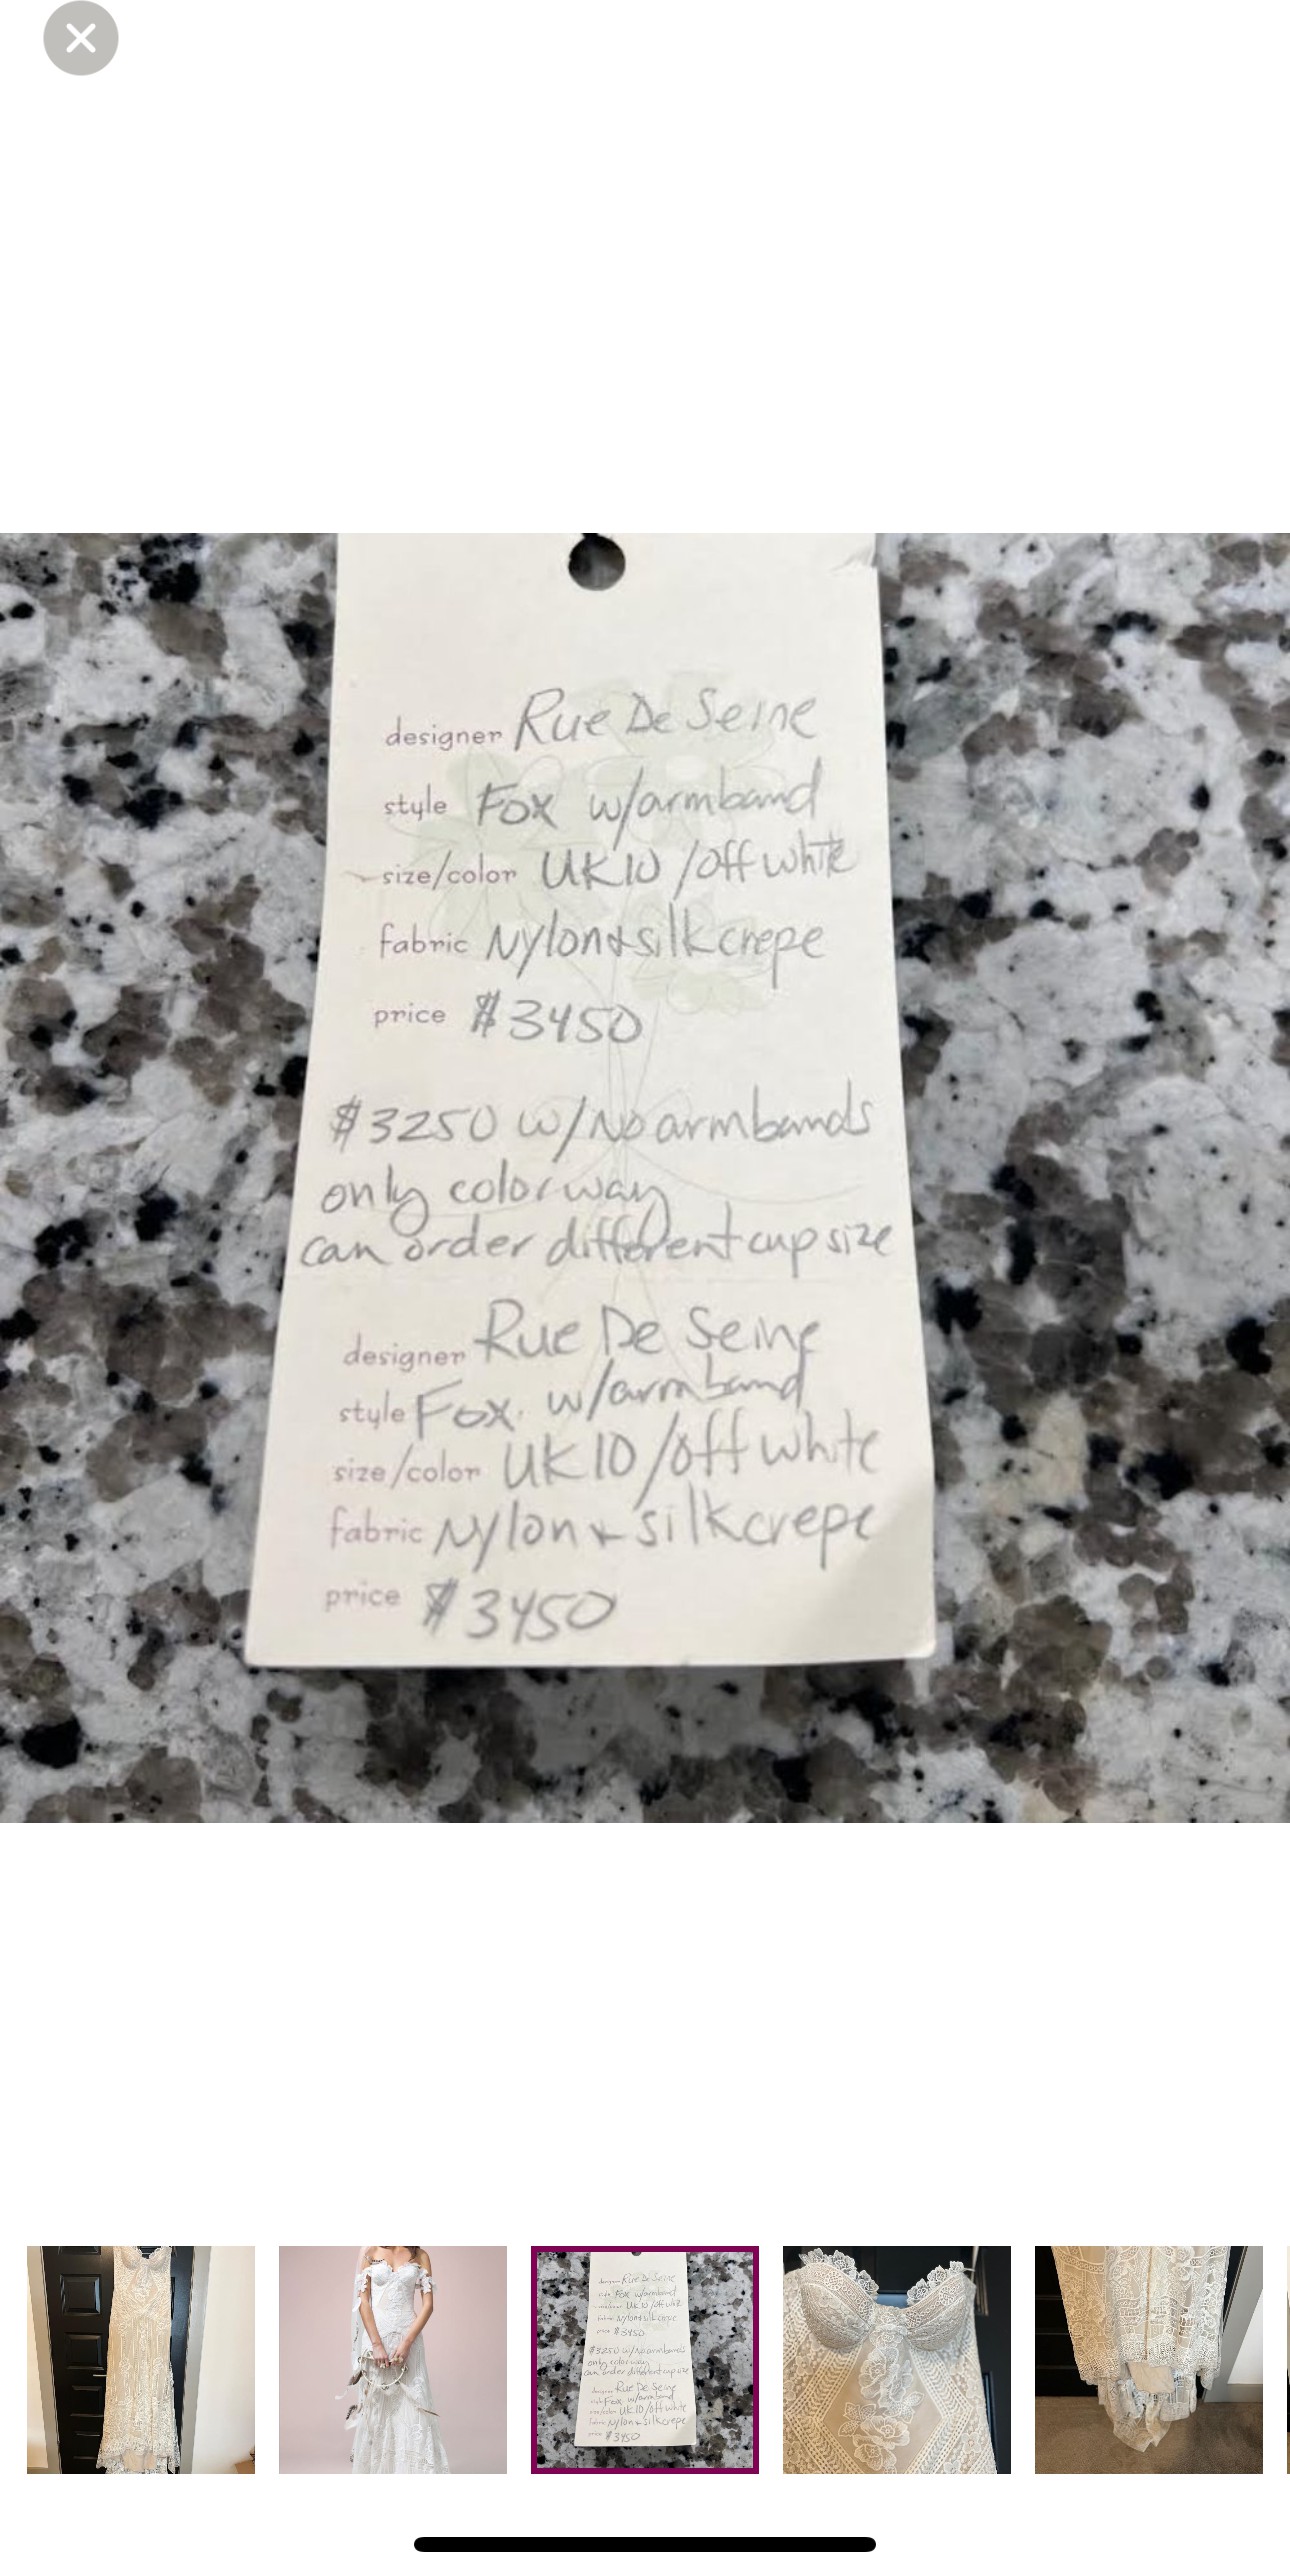 designer Rue De Seine
style Fox w/armband
size/color UK10 /off white
fabric Nylon+silkcrepe
price $3450
$3250 w/No armbands
only colorway
can order different cup size
designer Rue De Seine
style Fox w/armband
size/color UK 10/off white
fabric Nylon + silkcrepe
price $3450